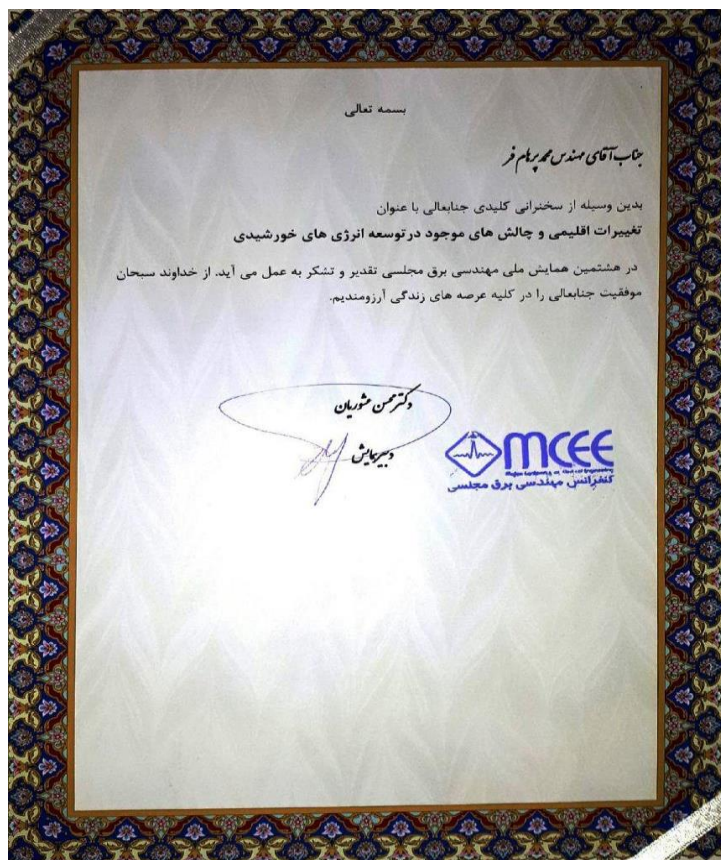 بسمه تعالی
جناب آقای مهندس محمد پرهام فر
بدین وسیله از سخنرانی کلیدی جنابعالی با عنوان
تغییرات اقلیمی و چالش های موجود در توسعه انرژی های خورشیدی
در هشتمین همایش ملی مهندسی برق مجلسی تقدیر و تشکر به عمل می آید. از خداوند سبحان
موفقیت جنابعالی را در کلیه عرصه های زندگی آرزومندیم.
دکتر محسن عشوریان
دبیر همایش
MCEE
کنفرانس مهندسی برق مجلسی